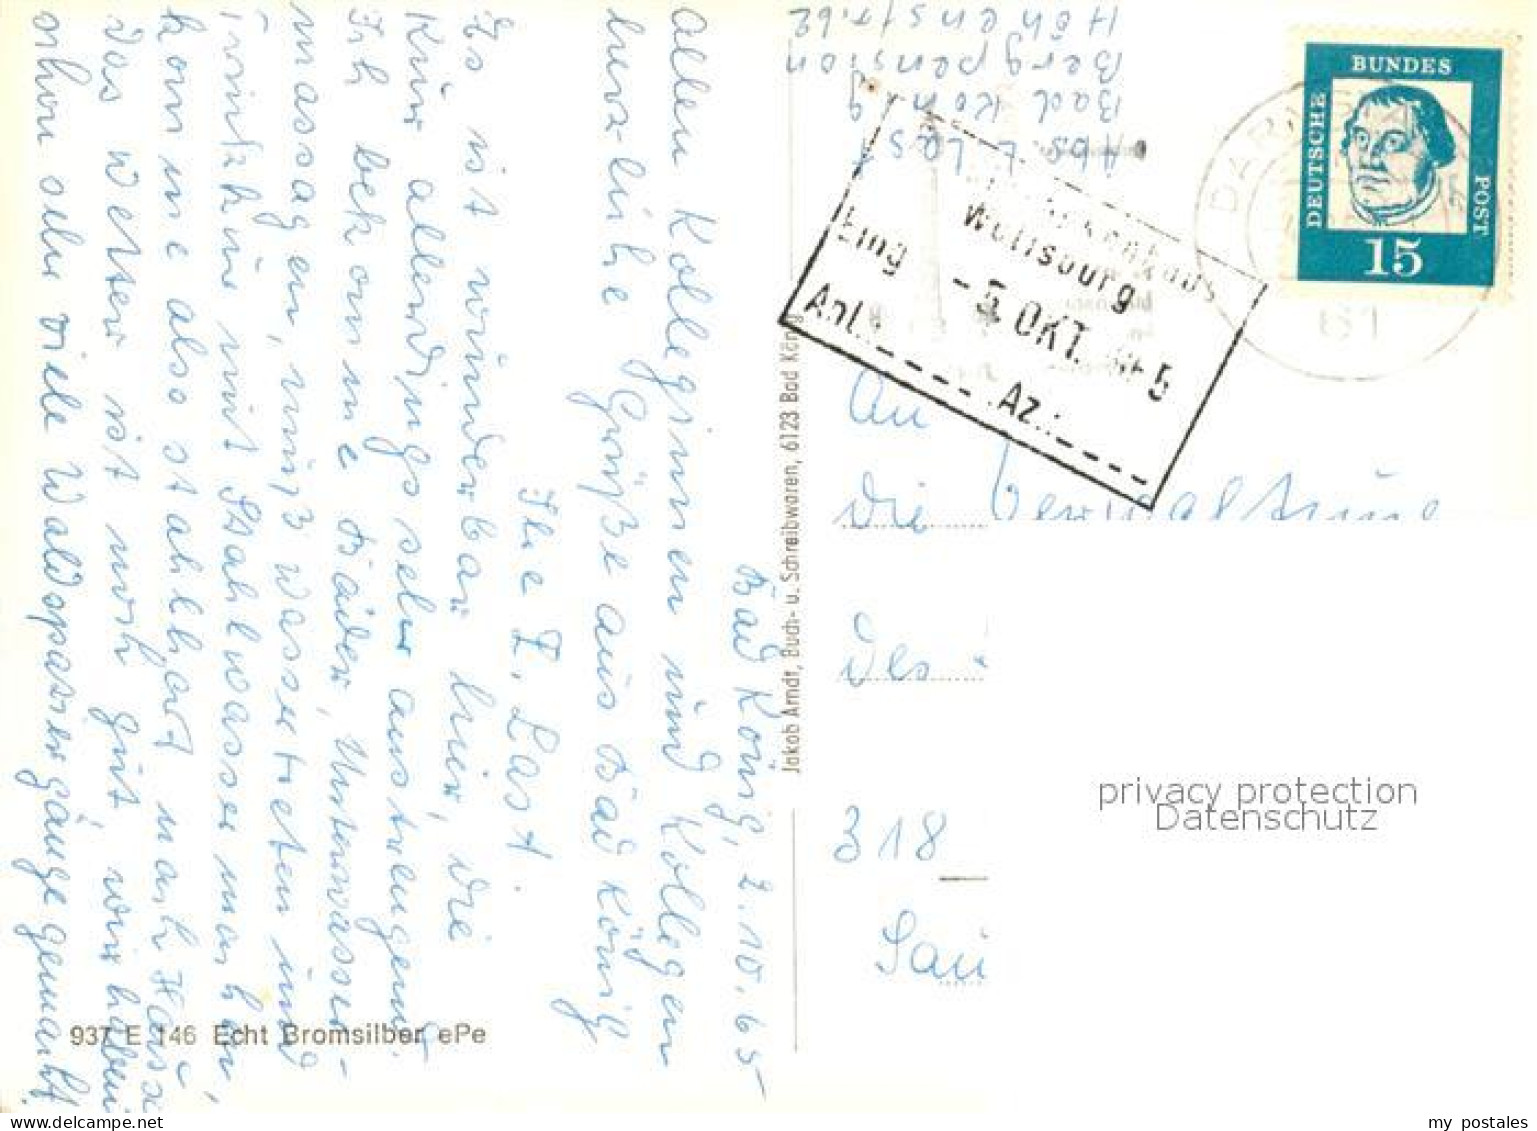 Bad König, 2.10.65
Allen Kolleginnen und Kollegen
herzliche Grüße aus Bad König
Ihre E. Last.
Es ist wunderbar hier, die
Kur allerdings sehr anstrengend.
Ich bekomme Bäder, Unterwasser-
massagen, muß Wassertreten und
Trinkkur mit Stahlwasser machen,
komme also stahlhart nach Hause
Das Wetter ist noch gut, wir haben
schon sehr viele Waldspaziergänge gemacht.
937 E 146 Echt Bromsilber ePe
Jakob Arndt, Buch- u. Schreibwaren, 6123 Bad König
Abs E Last
Bad König
Bergpension
Höhenstr. 62
DEUTSCHE
BUNDES
POST
15
Eing - 5. OKT. 5
Ant. Az.:
An
die Verwaltung
des
318
privacy protection
Datenschutz
my postales